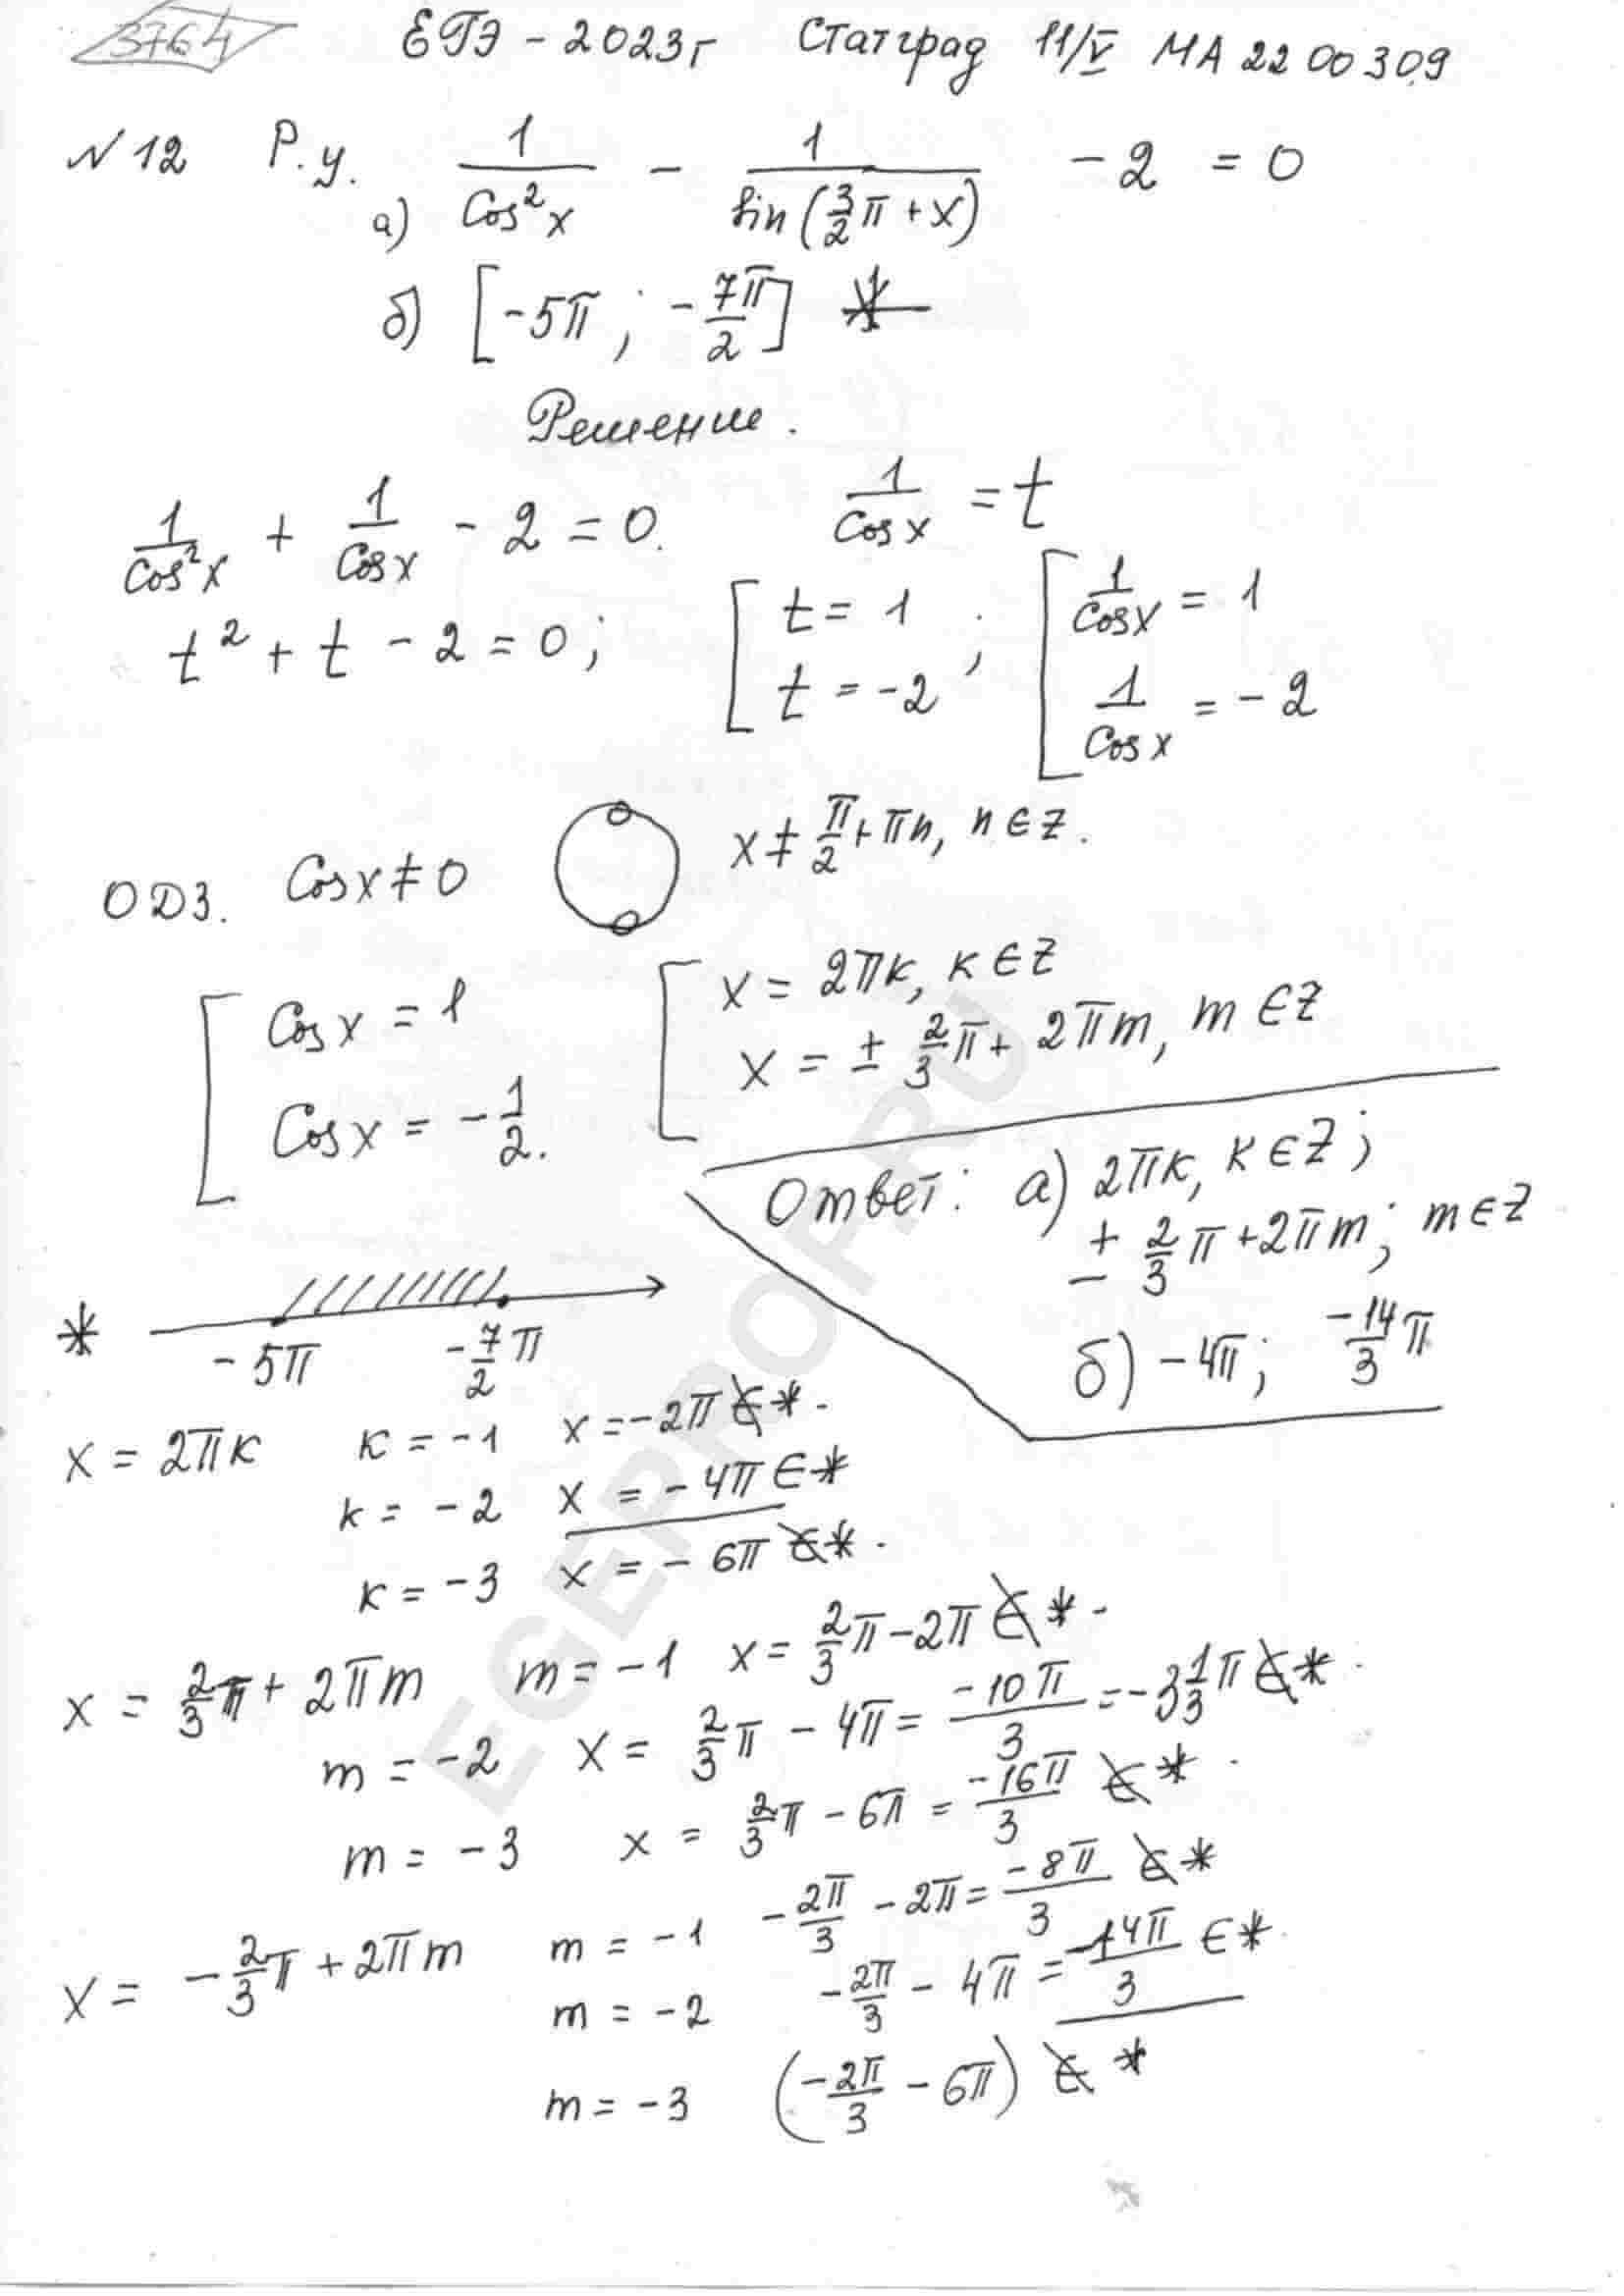 3764 ЕГЭ - 2023г Статград 11/V МА 2200309
№12 Р.у. а) 1/cos²x - 1/sin(3/2 π + x) - 2 = 0
б) [-5π ; -7π/2] *
Решение.
1/cos²x + 1/cosx - 2 = 0. 1/cosx = t
t² + t - 2 = 0; [ t = 1 ; [ 1/cosx = 1
t = -2 1/cosx = -2
ОДЗ. Cosx ≠ 0 x ≠ π/2 + πn, n ∈ Z.
[ Cosx = 1 [ x = 2πk, k ∈ Z
Cosx = -1/2. x = ± 2/3 π + 2πm, m ∈ Z
Ответ: а) 2πk, k ∈ Z;
± 2/3 π + 2πm; m ∈ Z
б) -4π; -14/3 π
* -5π -7/2 π
x = 2πk k = -1 x = -2π ∉ *.
k = -2 x = -4π ∈ *
k = -3 x = -6π ∉ *.
x = 2/3 π + 2πm m = -1 x = 2/3 π - 2π ∉ *.
m = -2 x = 2/3 π - 4π = -10π/3 = -3 1/3 π ∉ *.
m = -3 x = 2/3 π - 6π = -16π/3 ∉ *.
x = -2/3 π + 2πm m = -1 -2π/3 - 2π = -8π/3 ∉ *
m = -2 -2π/3 - 4π = -14π/3 ∈ *.
m = -3 (-2π/3 - 6π) ∉ *
EGEPRO.RU